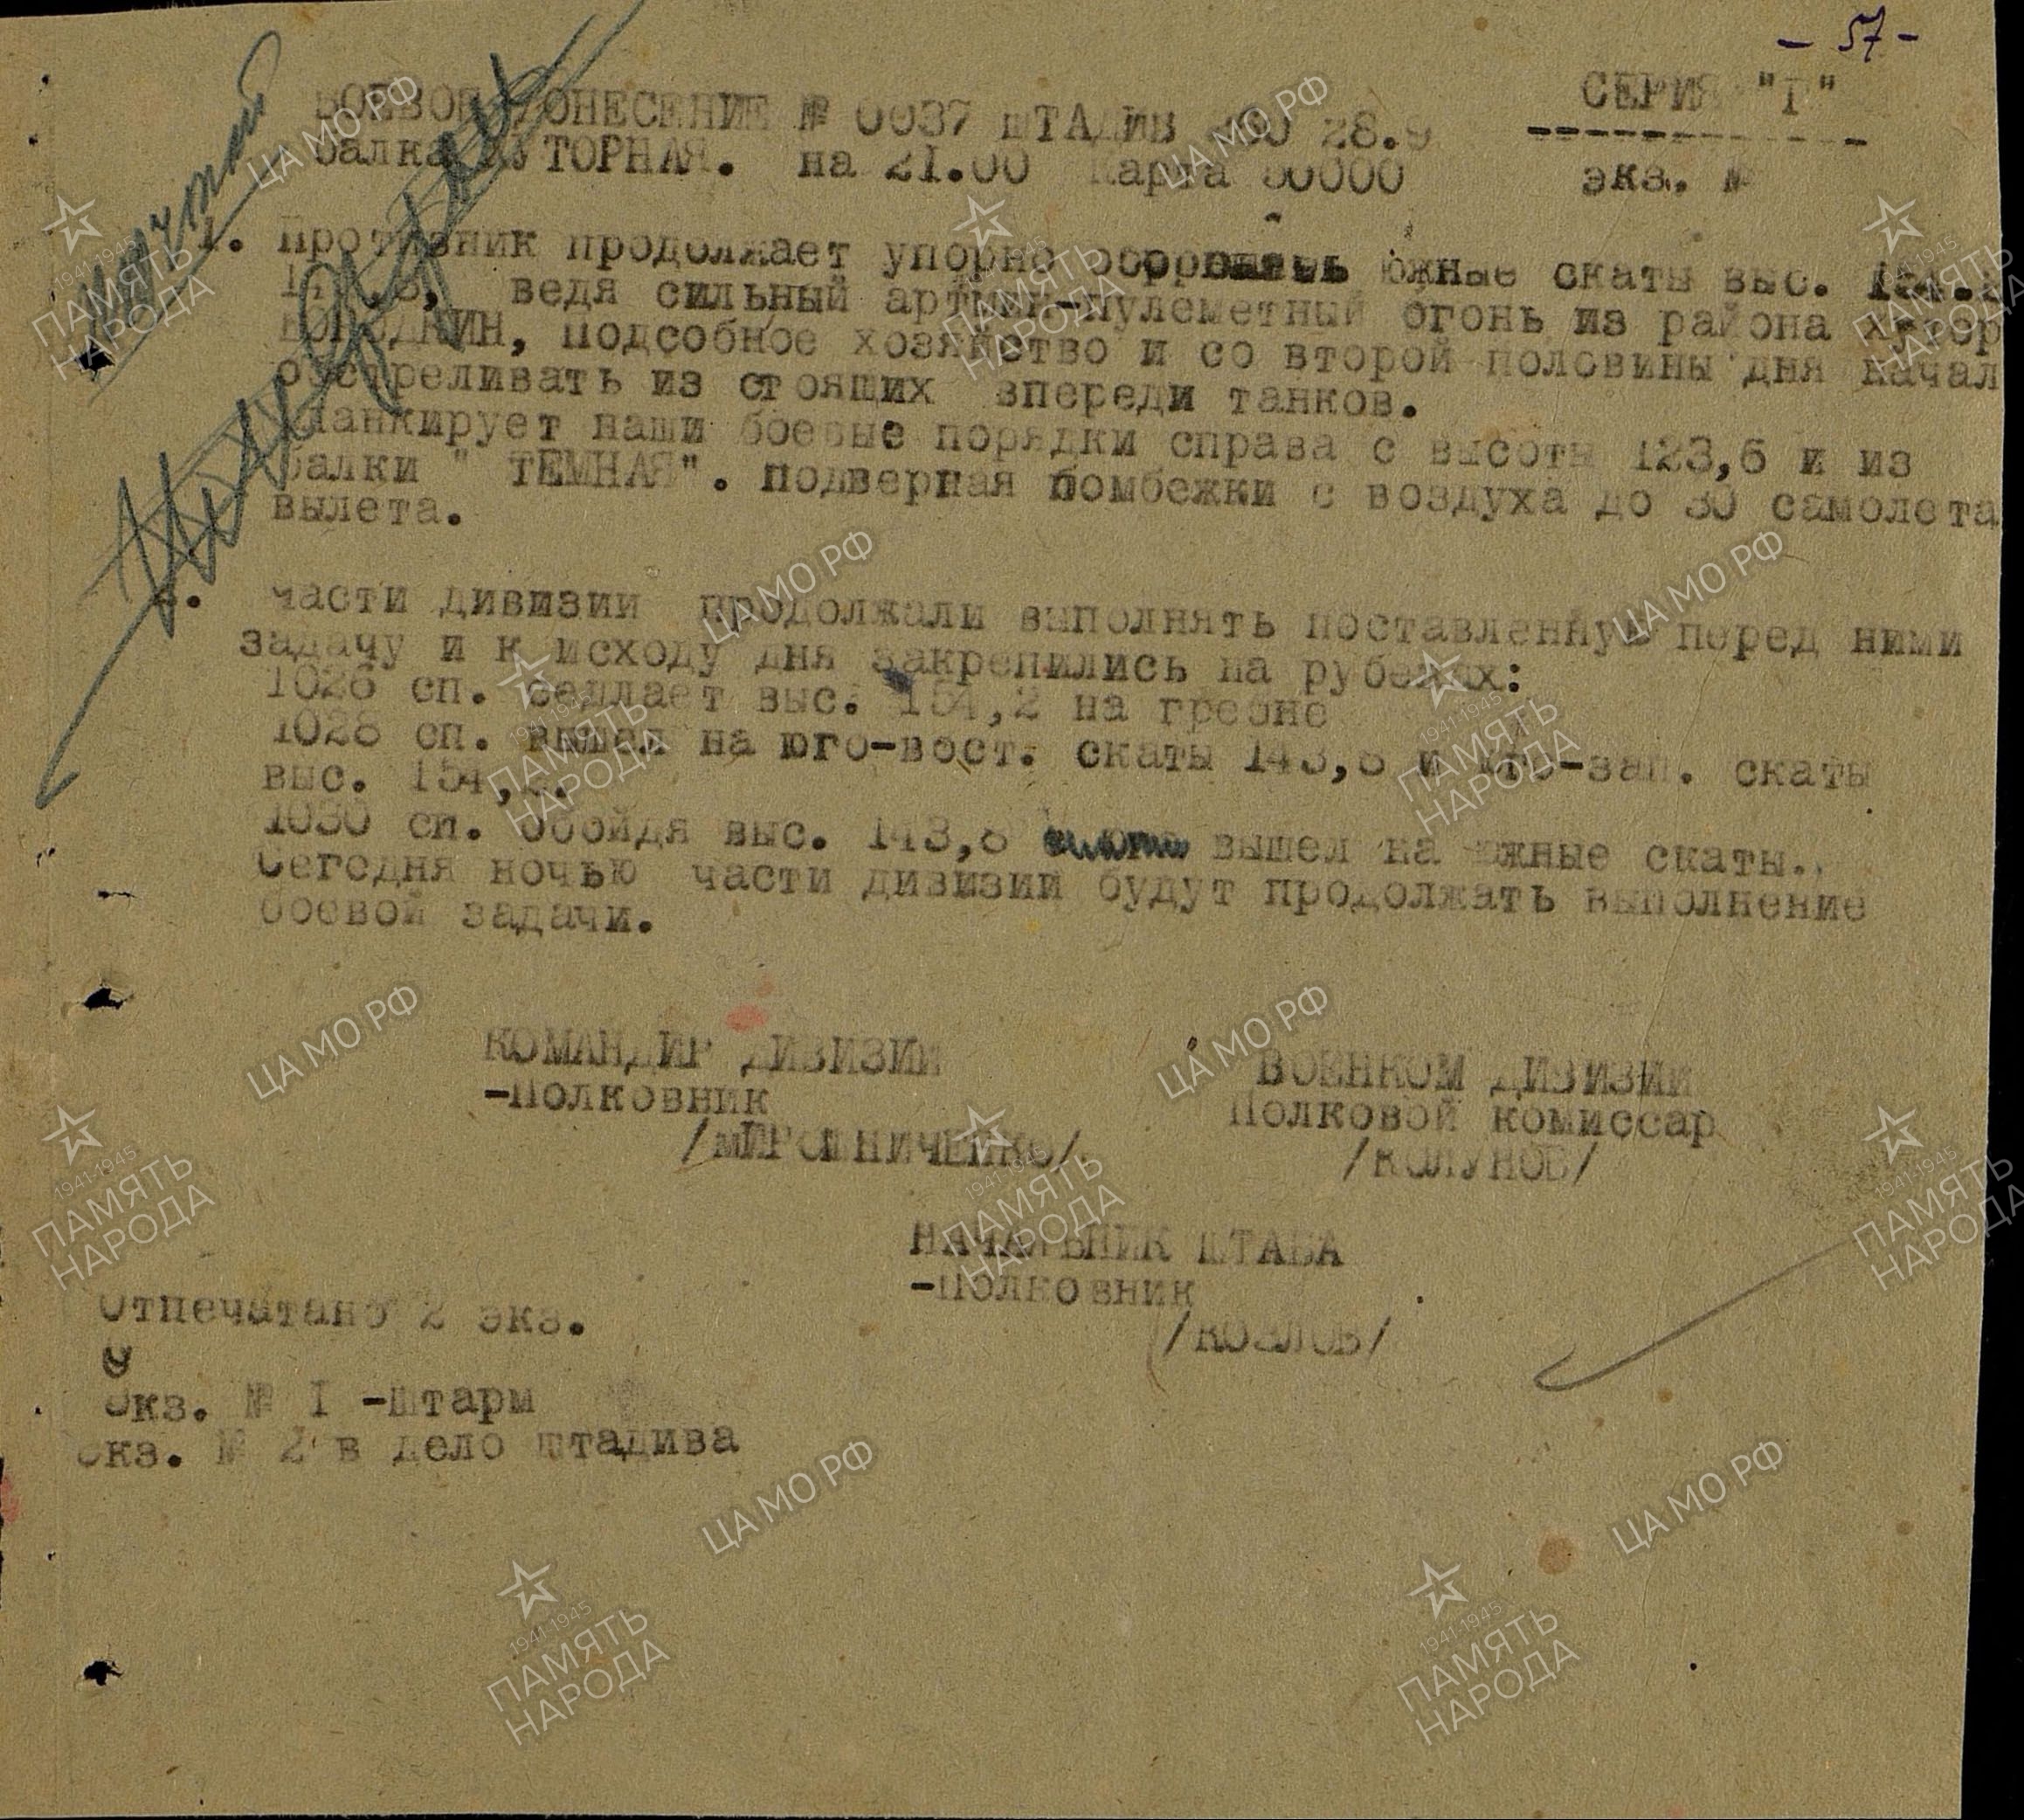 - 57 -
СЕРИЯ "Г"
БОЕВОЕ ДОНЕСЕНИЕ № 0037 ШТАДИВ 28.9
балка ХУТОРНАЯ. на 21.00 Карта 50000
экз. №
1. Противник продолжает упорно южные скаты выс.
ведя сильный пулеметный огонь из района хутор
БОРОДКИН, Подсобное хозяйство и со второй половины дня начал
обстреливать из стоящих впереди танков.
Фланкирует наши боевые порядки справа с высоты 123,6 и из
балки " ТЕМНАЯ". подверная бомбежки с воздуха до 30 самолета
вылета.
части дивизии продолжали выполнять поставленную перед ними
задачу и к исходу дня закрепились на рубежах:
1026 сп. седлает выс. 154,2 на гребне
1028 сп. вышел на юго-вост. скаты 143,8 и юго-зап. скаты
выс. 154,2.
1030 сп. обойдя выс. 143,8 вышел на южные скаты.
Сегодня ночью части дивизии будут продолжать выполнение
боевой задачи.
КОМАНДИР ДИВИЗИИ
-Полковник
/МИРОШНИЧЕНКО/
ВОЕНКОМ ДИВИЗИИ
Полковой комиссар
/КОЛУНОВ/
НАЧАЛЬНИК ШТАБА
-Полковник
/КОЗЛОВ/
Отпечатано 2 экз.
Экз. № I -Штарм
Экз. № 2 в дело штадива
ЦА МО РФ
1941-1945
ПАМЯТЬ
НАРОДА